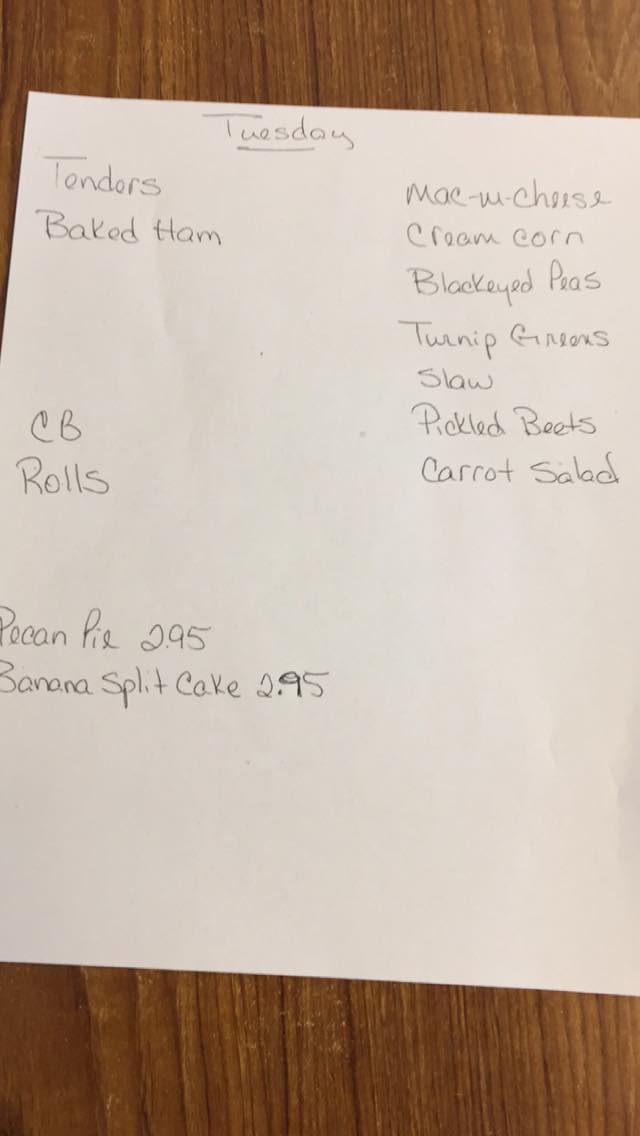 Tuesday
Tenders
Baked Ham
CB
Rolls
Mac-n-Cheese
Cream Corn
Blackeyed Peas
Turnip Greens
Slaw
Pickled Beets
Carrot Salad
Pecan Pie 2.95
Banana Split Cake 2.95